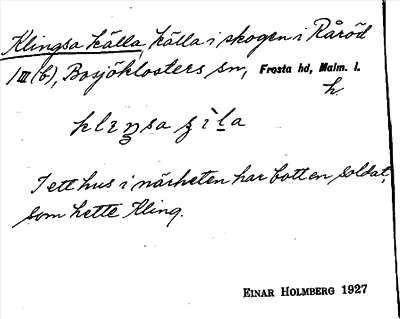 Klingsa källa, källa i skogen i Råröd
1 III (b), Bosjöklosters sn, Frosta hd, Malm. l.
h.
klıŋsa ʂìl̠a
I ett hus i närheten har bott en soldat,
som hette Kling.
EINAR HOLMBERG 1927